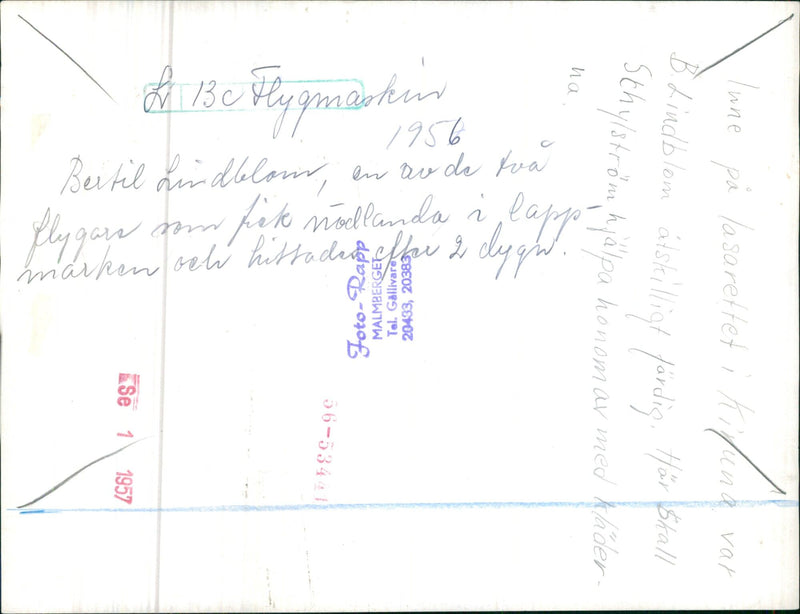 Lv 13c Flygmaskin
1956
Bertil Lindblom, en av de två
flygare som fick nödlanda i lapp-
marken och hittades efter 2 dygn.
Foto-Rapp
MALMBERGET
Tel. Gällivare
20433, 20383
Inne på lasarettet i Kiruna var
B. Lindblom åtskilligt färdig. Här skall
Sthylström hjälpa honom av med kläder-
na.
1 1957